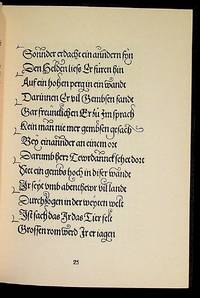 Sonnder erdacht ein anndern syn
Den Helden liess Er füren hin
Auf ein hohen perg in ein wandt
Darinnen Er vil Gembsen fandt
Gar freündtlichen Er zu im sprach
Kein man nie mer gembsen gesach
Bey einannder an einem ort
Darumb herr Tewrdannck sehet dort
Hiet ein gembs hoch in diser wandt
Ir seyt umb abenthewr vil lande
Durchzogen in der weyten welt
Ist sach das Ir das Tier felt
Grossen rom werd Ir erjagen
25